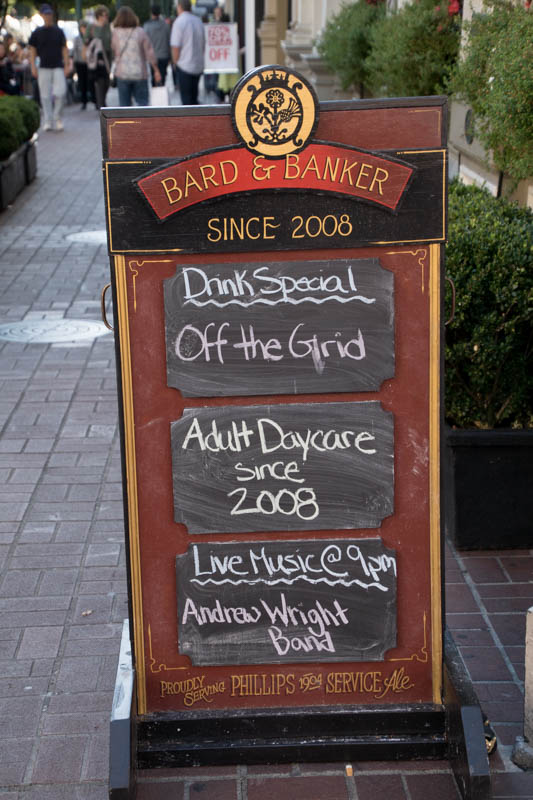 OFF
BARD & BANKER
SINCE 2008
Drink Special
Off the Grid
Adult Daycare
since
2008
Live Music @ 9pm
Andrew Wright
Band
PROUDLY SERVING PHILLIPS 1904 SERVICE Ale